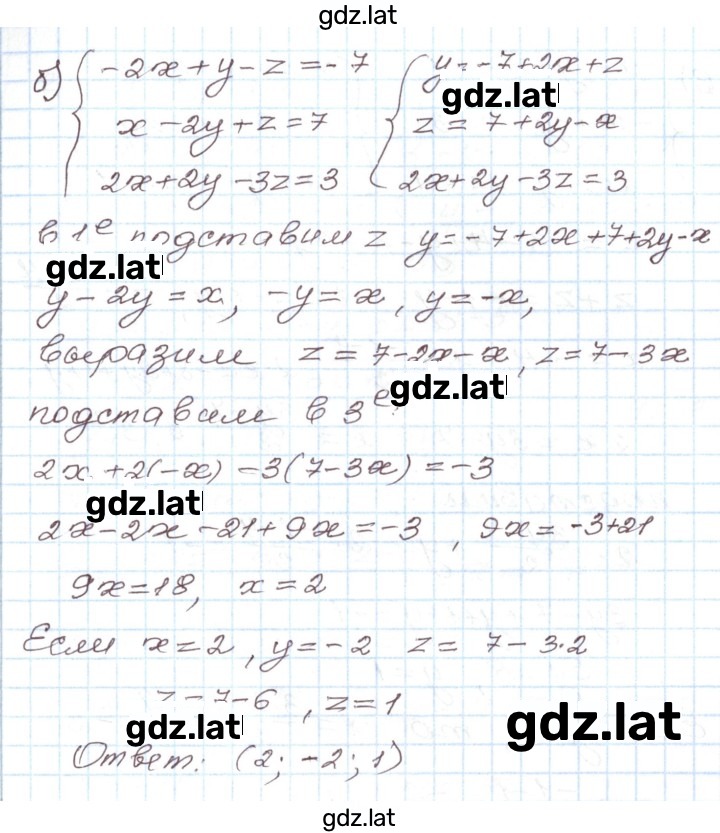 gdz.lat
б) { -2x + y - z = -7 { y = -7 + 2x + z
gdz.lat
x - 2y + z = 7 z = 7 + 2y - x
2x + 2y - 3z = 3 2x + 2y - 3z = 3
в 1е подставим z y = -7 + 2x + 7 + 2y - x
gdz.lat
y - 2y = x, -y = x, y = -x,
выразим z = 7 - 2x - x, z = 7 - 3x
gdz.lat
подставим в 3е:
2x + 2(-x) - 3(7 - 3x) = -3
gdz.lat
2x - 2x - 21 + 9x = -3, 9x = -3 + 21
9x = 18, x = 2
Если x = 2, y = -2 z = 7 - 3·2
z = 7 - 6, z = 1
gdz.lat gdz.lat
Ответ: (2; -2; 1)
gdz.lat